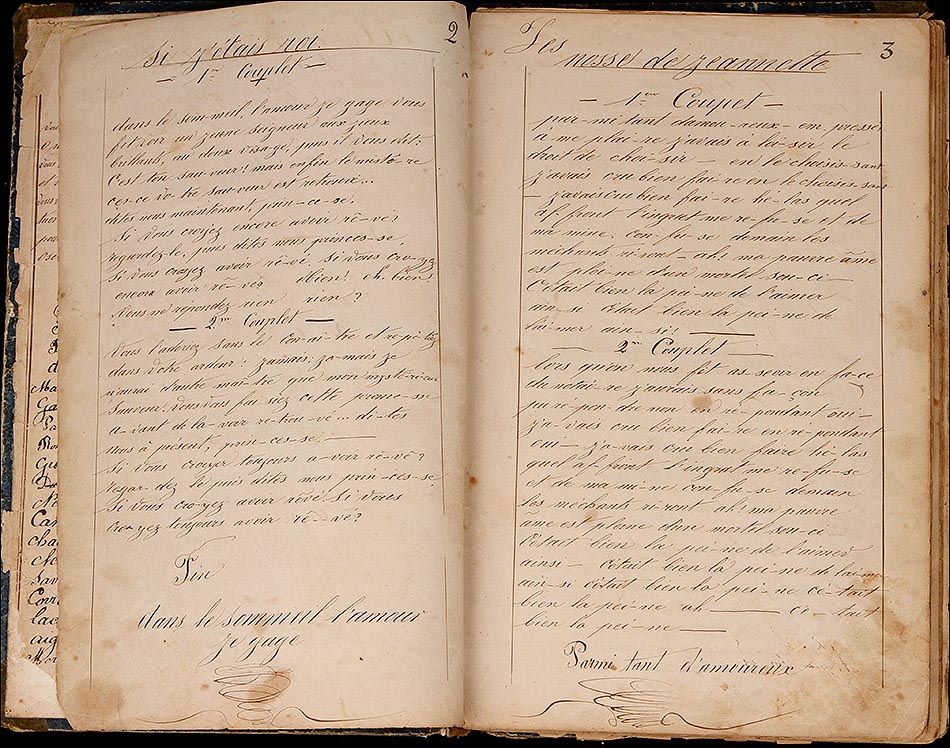 Si j'étais roi.
2
— 1er Couplet —
dans le som-meil, l'amour je gage vous
fit voir un jeune Seigneur aux yeux
brillants, au doux visage, puis il vous dit:
C'est ton sauveur! mais enfin le mistè-re
ces-ce vo-tre sauveur est retrouvé...
dites nous maintenant, prin-ce-se.
Si vous croyez encore avoir rê-vé?
regardez-le, puis dites nous princes-se.
Si vous croyez avoir rê-vé. Si vous cro-yez
encore avoir rê-vé? Hien! eh bien!
Vous ne répondez rien rien?
— 2me Couplet —
Vous l'adoriez sans le con-ai-tre et répé-tiez
dans votre ardeur: jamais, ja-mais je
n'aurai d'autre maî-tre que mon mysté-rieux
Sauveur! Vous vous fai siez cette prome-sse
a-vant de la-voir re-trou-vé... di-tes
nous à présent, prin-ces-se.—
Si vous croyer toujours a-voir rê-vé?
regar-dez le puis dites nous prin-ces-se.
Si vous cro-yez avoir rêvé Si vous
cro-yez toujours avoir rê-vé?
Fin
dans le sommeil l'amour
je gage
Les
3
nosse de jeannette
— 1er Coupet —
par-mi tant damou-reux- em pressé
à me plai-re javais à loi-sir le
droit de choi-sir — en le choisis-sant
j'avais cru bien fai-re en le choisis-sant
— j'avais cru bien fai-re hé-las quel
af-front l'ingrat me re-fu-se et de
ma mine. con-fu-se demain les
méchants riront— ah! ma pauvre âme
est plei-ne d'un mortel sou-ci—
C'était bien la pei-ne de l'aimer
ain-si c'était bien la pei-ne de
l'ai-mer ain-si!
— 2me Couplet —
lors qu'on nous fit as-seoir en fa-ce
du notai-re j'aurais sans fa-çon
pu ré-pon-dre non en ré-pondant oui—
ja-vais cru bien fai-re en ré-pondant
oui— ja-vais cru bien faire hé-las
quel af-front l'ingrat me re-fu-se
et de ma mi-ne con-fu-se demain
les méchants ri-ront ah! ma pauvre
ame est pleine d'un mortel sou-ci—
C'était bien la pei-ne de l'aimer
ainsi— c'était bien la pei-ne de l'ai-mer
ain-si c'était bien la pei-ne cé-tait
bien la pei-ne ah — cé-tait
bien la pei-ne —
Parmi tant d'amoureux